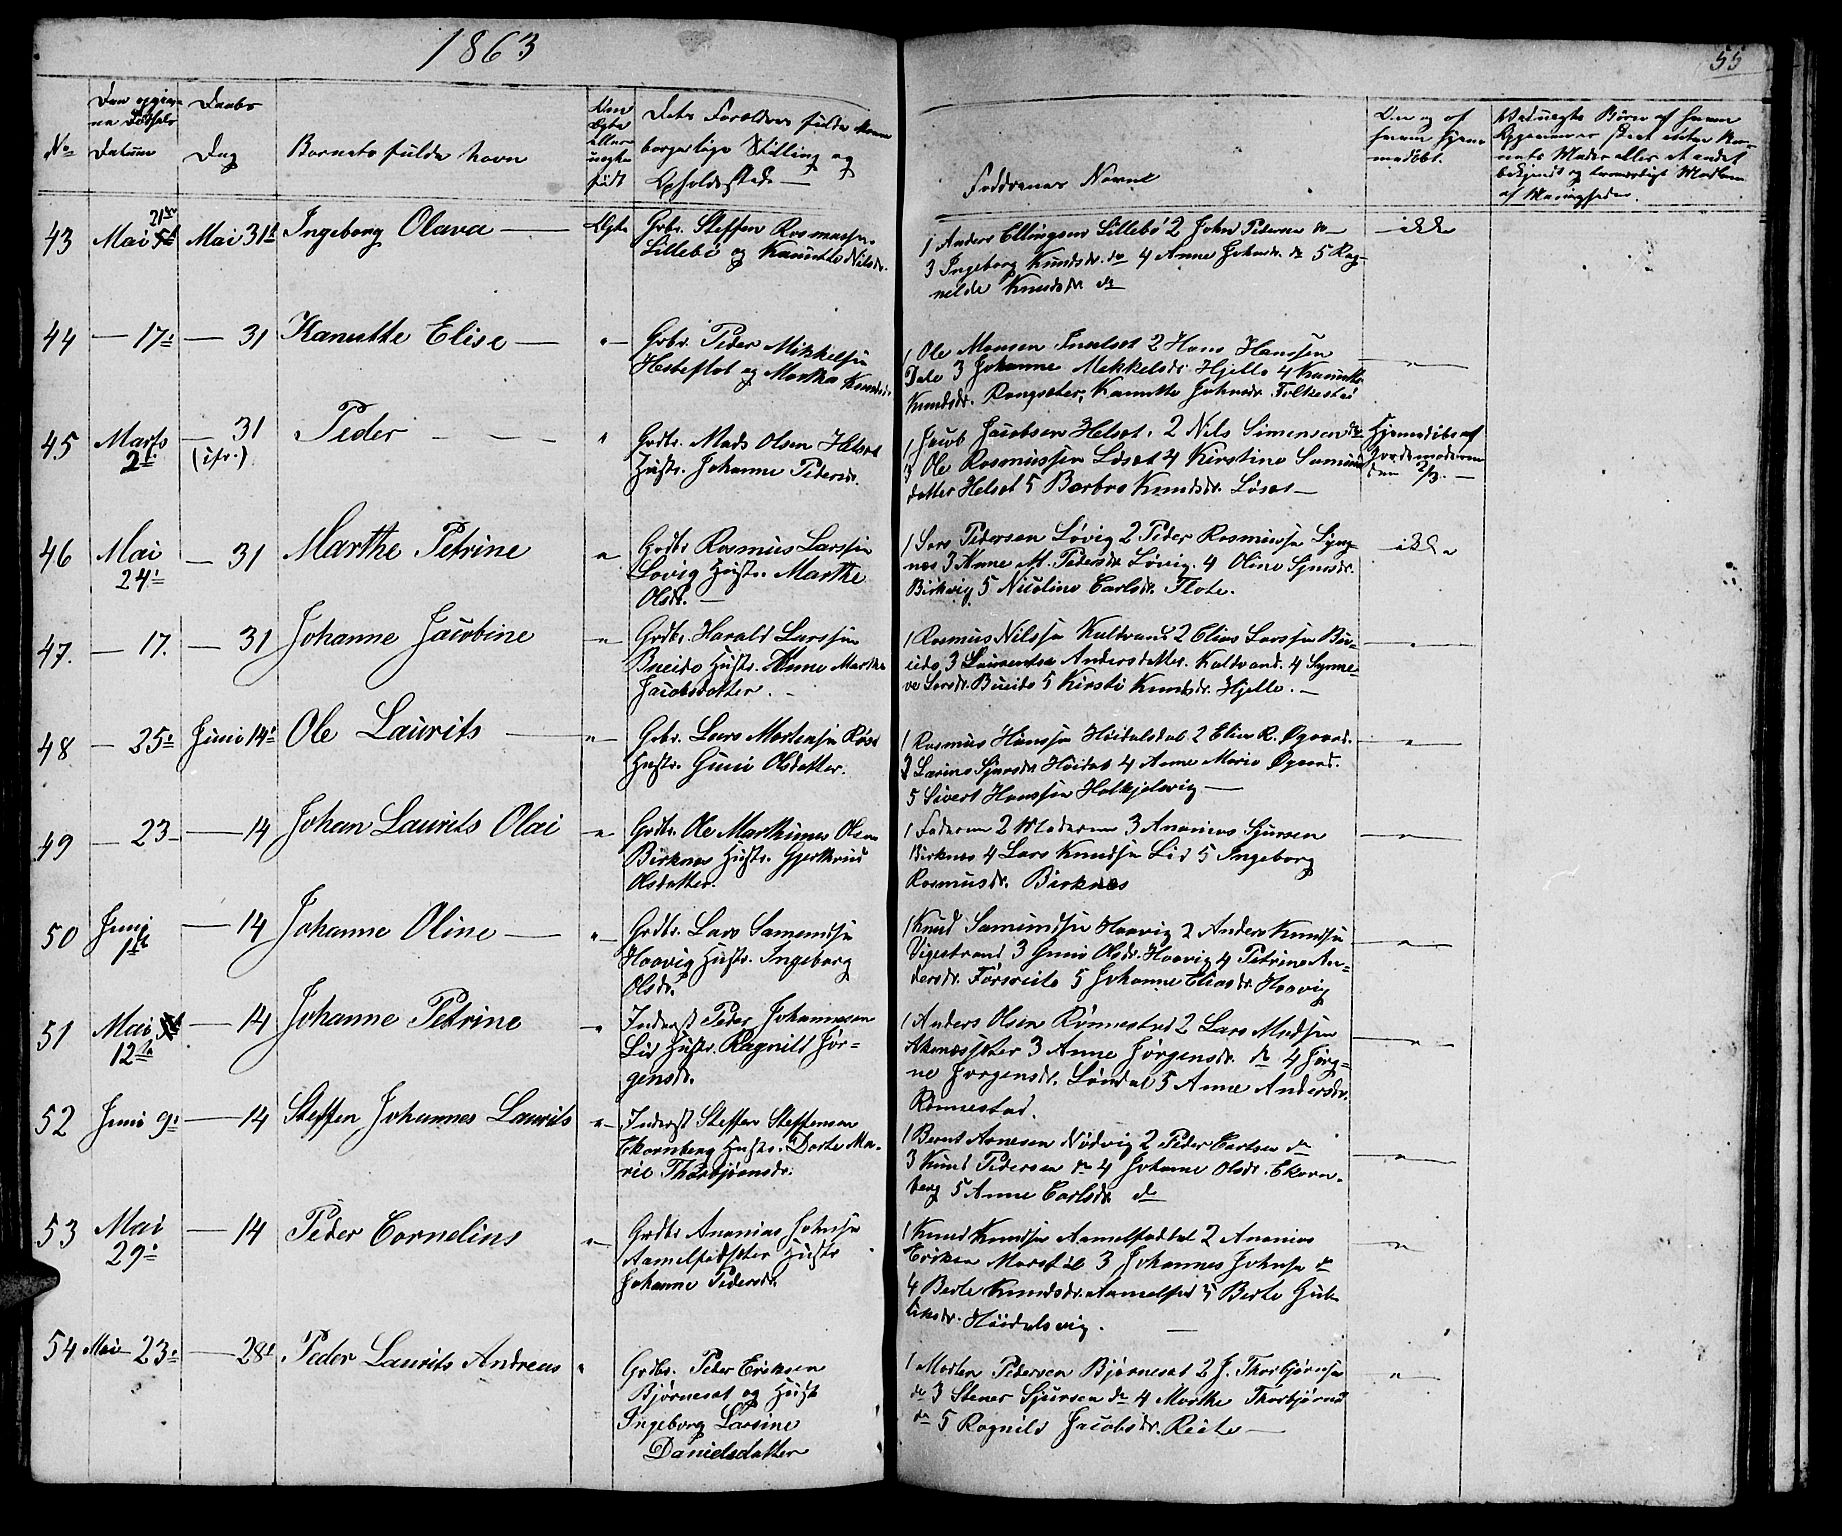 1863
55
No
Datum
Daabs
Dag
Barnets fulde Navn
borgerlige Stilling og
Opholdssted
Faddrenes Navne
43 Mai Mai 31te Ingeborg Olava — Ægte Grbr. Steffen Rasmussen
Lillebø og Kanutte Nilsdr.
1 Anders Ellingsen Lillebø 2 John Pedersen do
3 Ingeborg Knudsdr. do 4 Anne Johnsdr. do 5 Rag-
nilde Knudsdr. do
ikke
44 — 17de — 31 Kanutte Elise — " Grbr. Peder Mikkelsen
og Marthe Knudsdr.
1 Ole Monsen 2 Hans Hanssen
Dale 3 Johanne Mikkelsdr. Hjelle 4 Kanutte
Knudsdr. Rangsæter, Kanutte Johnsdr. Folkestad
— " —
45 Marts 2de — 31 (ifr.) Peder — " Grdbr. Mads Olsen Helset
Hustr. Johanne Pedersdr.
1 Jacob Jacobsen Helset. 2 Nils Simensen do
3 Ole Rasmussen Løset 4 Kirstine Samuels
datter Helset 5 Barbro Knudsdr. Løset —
Hjemmedøbt af
Jordemoderen
den 2/3. —
46 Mai 24de — 31 Marthe Petrine " Grdbr. Rasmus Larssen
Løvig Hustr. Marthe
Olsdr. —
1 Lars Pedersen Løvig 2 Peder Rasmussen
3 Anne M. Pedersdr. Løvig. 4 Oline
Birkvig 5 Nicoline Carlsdr. Flote.
— ikke
47. — 17. — 31 Johanne Jacobine " Grdbr. Harald Larssen
Bueide Hustr. Anne Marthe
Jacobsdatter. —
1 Rasmus Nilssen Kaldvand 2 Elias Larssen Bu-
eide 3 Laurentse Andersdatter. Kaldvand. 4 Synne-
ve Larsdr. Bueide 5 Kirsti Knudsdr. Hjelle. —
— " —
48 — 25de Juni 14de Ole Laurits — " Grbr. Lars Martensen
Hustr. Guni Olsdatter.
1 Rasmus Hansen Höidalsdal 2 Elias R. Øgaard.
3 Larine Sjursdr. Höidal 4 Anne Marie Øgaard.
5 Sivert Hanssen Holkjelsvig —
— " —
49 — 23 — 14 Johan Laurits Olai " Grdbr. Ole Marthinus Olsen
Birknes Hustr. Gjertrud
Olsdatter.
1 Faderen 2 Moderen 3 Ananias Sjursen
Birknes 4 Lars Knudsen Lid 5 Ingeborg
Rasmusdr. Birknes
— " —
50 Juni 1ste — 14 Johanne Oline — " Grdbr. Lars Samundsen
Haavig Hustr. Ingeborg
Olsdr.
1 Knud Samundsen Haavig 2 Anders Knudsen
Vigestrand 3 Guni Olsdr. Haavig 4 Petrine An-
dersdr. 5 Johanne Eliasdr. Haavig
— " —
51 Mai 12te — 14 Johanne Petrine " Inderst Peder Johannesen
Lid Hustr. Ragnild Jør-
gensdr.
1 Anders Olsen Rønnestad 2 Lars Madsen
Aknæssæter 3 Anne Jørgensdr. do 4
Jørgensdr. Løndal 5 Anne Andersdr.
Rønnestad.
— " —
52 Juni 9de — 14 Steffen Johannes Laurits " Inderst Steffen Steffensen
Ekornberg Hustr. Dorte Ma-
rie Thorbjørnsdr.
1 Bernt Arnesen Nødvig 2 Peder Carlsen do
3 Knud Pedersen do 4 Johanne Olsdr. Ekorn-
berg 5 Anne Carlsdr. do
— " —
53 Mai 29de — 14 Peder Cornelius " Grdbr. Ananias Johnsen
Aamelfodsæter Hustr
Johanne Pedersdr.
1 Knud Knudsen 2 Ananias
Eriksen Marstøl 3 Johannes Johnsen do
4 Berte Knudsdr. Aamelfod 5 Berte
Höidalsvig. —
"
54 Mai 23de — 28de Peder Laurits Andreas " Grdbr. Peder Eriksen
Bjørneset og Hust
Ingeborg Larsine
Danielsdatter
1 Morten Pedersen Bjørneset 2 J. Thorbjørnsen
do 3 Stener Sjursen do 4 Marthe Thorbjørnsd
do 5 Ragnild Jacobsdr. Reite —
— " —